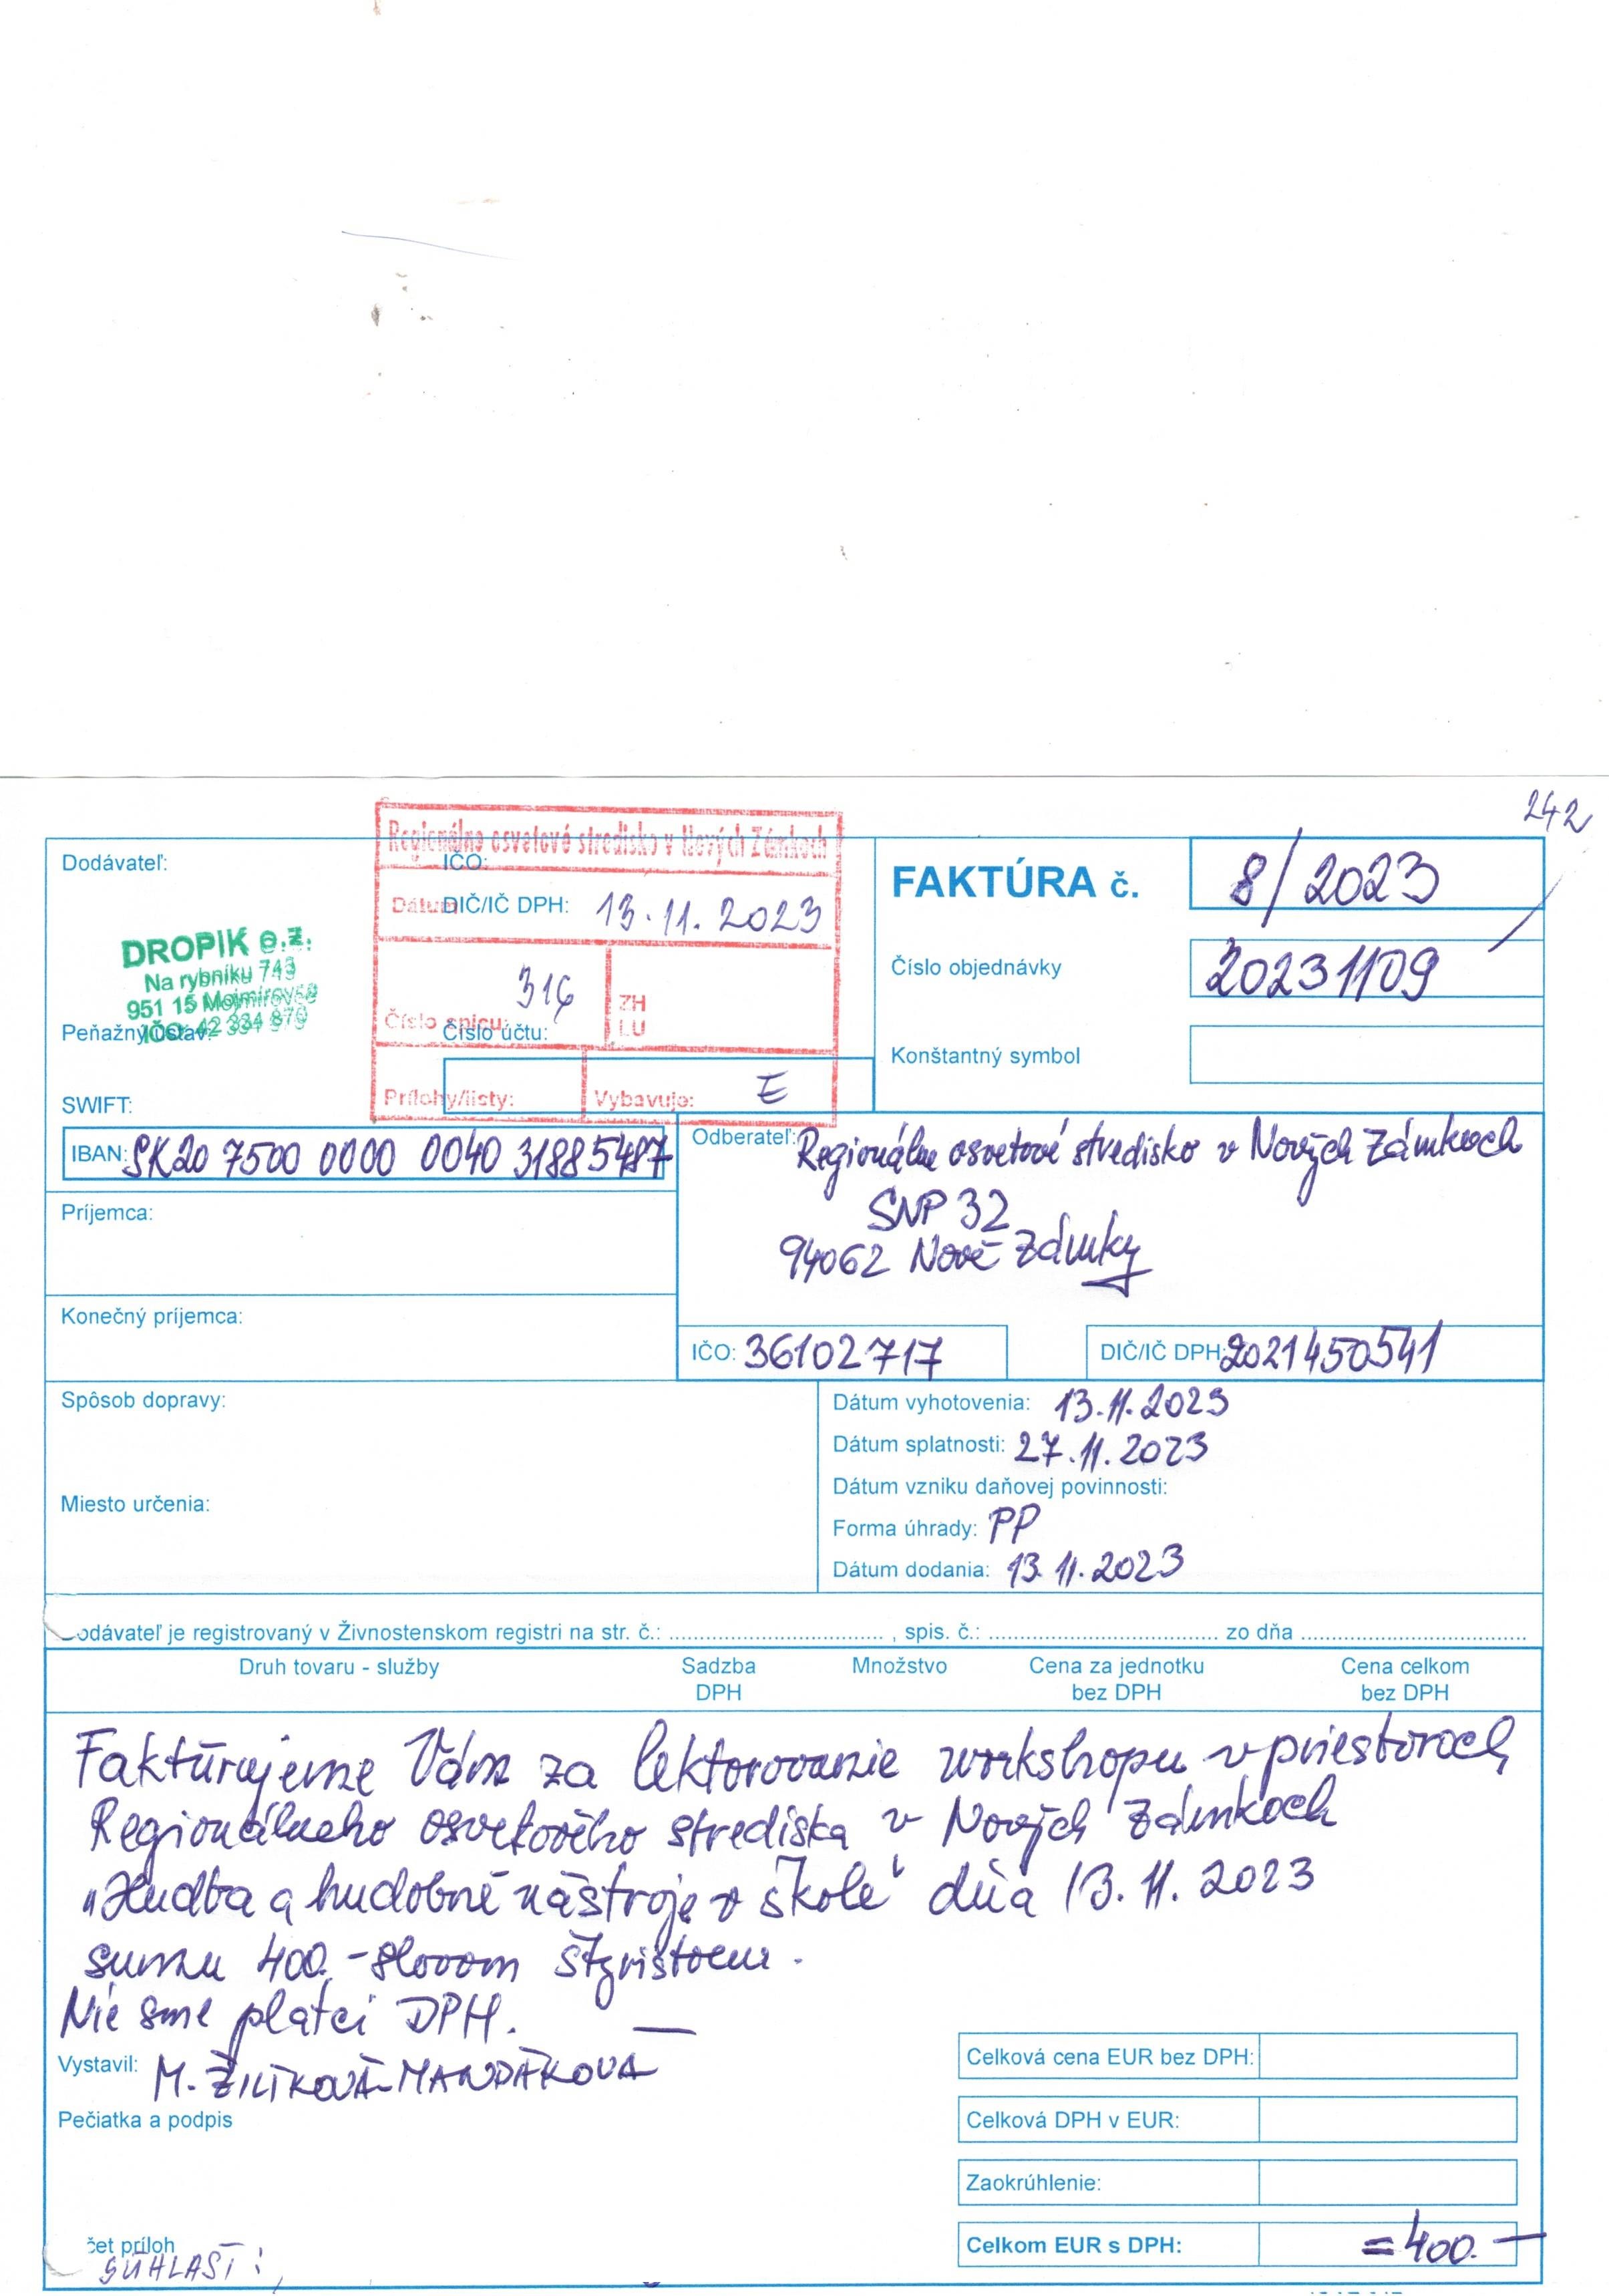 242
Dodávateľ:
DROPIK o.z.
Na rybníku 743
951 15 Mojmírovce
IČO: 42 334 870
Peňažný ústav:
SWIFT:
IČO:
DIČ/IČ DPH:
Číslo účtu:
Regionálne osvetové stredisko v Nových Zámkoch
Dátum 13.11.2023
Číslo spisu: 316
ZH
LU
Prílohy/listy: Vybavuje: E
FAKTÚRA č. 8/2023
Číslo objednávky 20231109
Konštantný symbol
IBAN: SK20 7500 0000 0040 31885487
Odberateľ: Regionálne osvetové stredisko v Nových Zámkoch
SNP 32
94062 Nové Zámky
Príjemca:
Konečný príjemca:
IČO: 36102717 DIČ/IČ DPH: 2021450541
Spôsob dopravy:
Miesto určenia:
Dátum vyhotovenia: 13.11.2023
Dátum splatnosti: 27.11.2023
Dátum vzniku daňovej povinnosti:
Forma úhrady: PP
Dátum dodania: 13.11.2023
odávateľ je registrovaný v Živnostenskom registri na str. č.: , spis. č.: zo dňa
Druh tovaru - služby Sadzba DPH Množstvo Cena za jednotku bez DPH Cena celkom bez DPH
Faktúrujeme Vám za lektorovanie workshopu v priestoroch
Regionálneho osvetového strediska v Nových Zámkoch
"Hudba a hudobné nástroje v škole" dňa 13.11.2023
sumu 400.- slovom štyristoeur.
Nie sme platci DPH.
Vystavil: M. ŽILÍKOVÁ-MANDÁKOVÁ
Pečiatka a podpis
Celková cena EUR bez DPH:
Celková DPH v EUR:
Zaokrúhlenie:
Celkom EUR s DPH: =400.-
čet príloh
SÚHLASÍ: